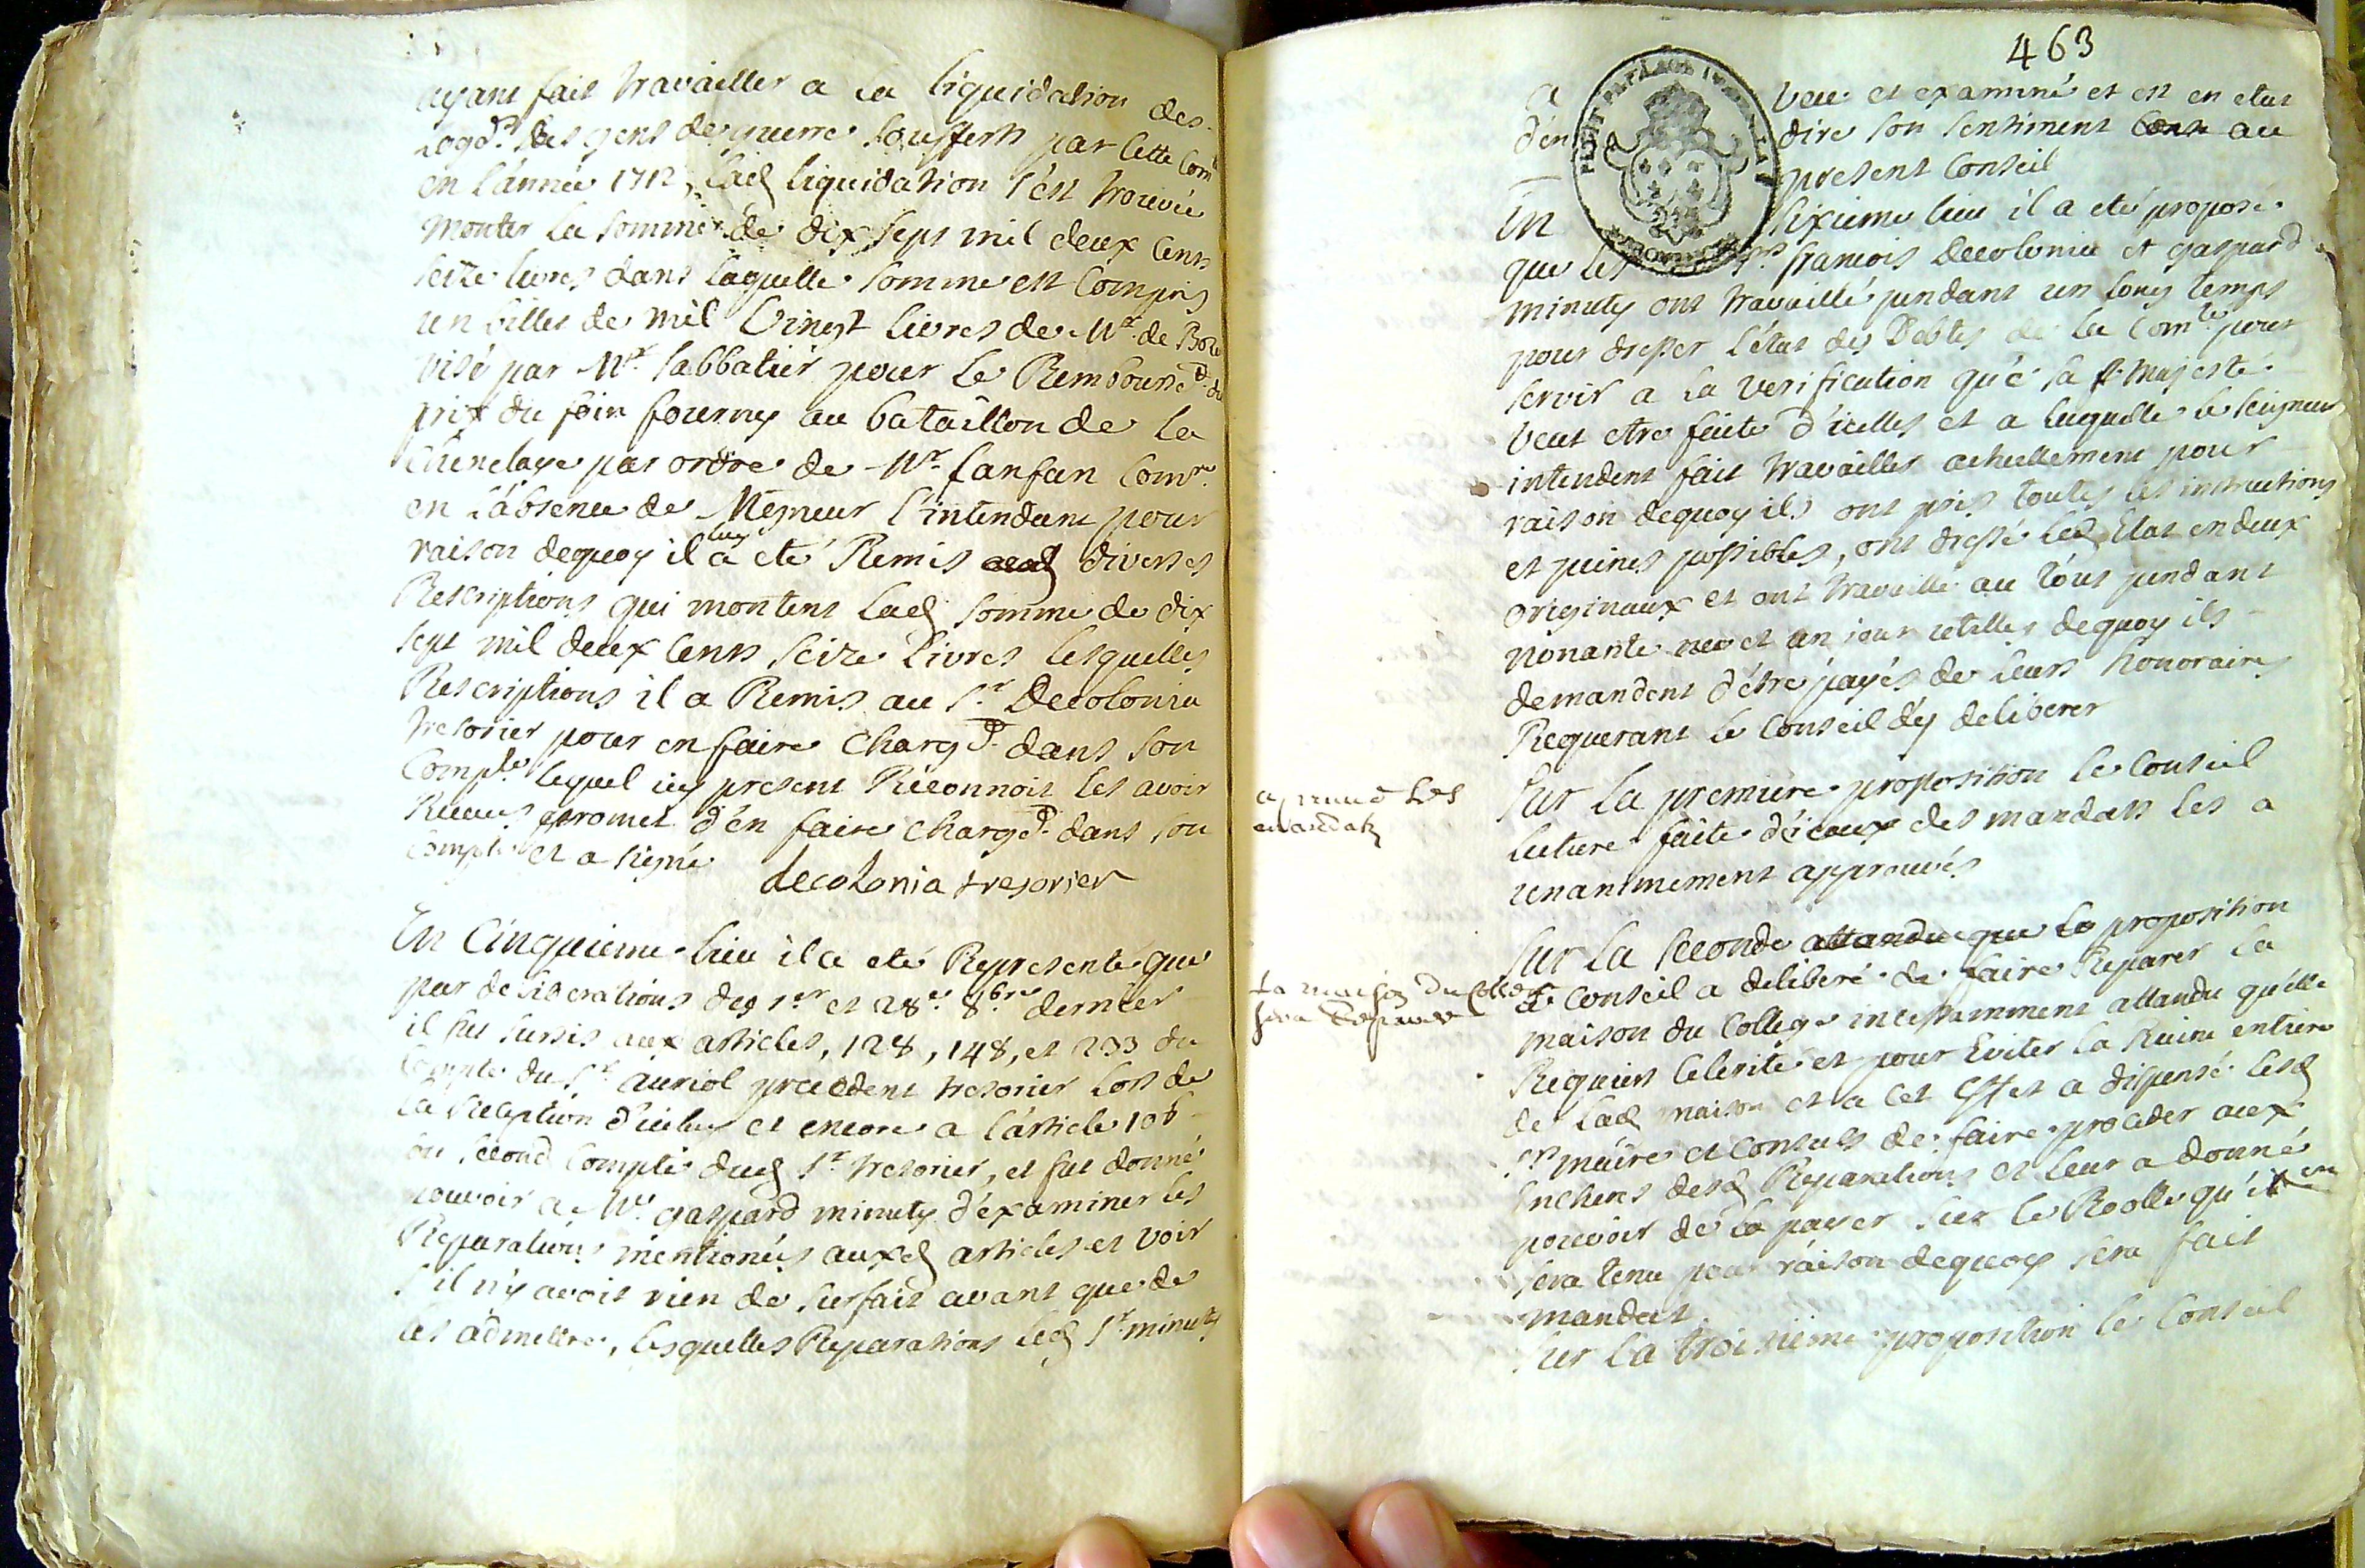 ayant fait travailler a la liquidation des
Loged.ts des gens de guerre soufferts par cette Com.té
en l'année 1712, lad liquidation s'est trouvée
monter la somme de dix sept mil deux cents
seize livres dans laquelle somme est compris
un billet de mil vingt livres de Mr. de
visé par Mr. Sabbatier pour le Rembourse.t du
prix du foin fourny au bataillon de la
par ordre de Mr. Lanfan Com.re
en l'absence de Mgneur l'intendant pour
raison dequoy il luy a eté Remis diverses
Rescriptions qui montent lad somme de dix
sept mil deux cents seize livres lesquelles
Rescriptions il a Remis au Sr. Decolonia
tresorier pour en faire charg.t dans son
Compte lequel icy present Reconnoit les avoir
Receues promet d'en faire charge.t dans son
compte et a signé
decolonia tresorier
En Cinquieme lieu il a eté Representé que
par deliberations des 1.er et 28.e 8bre dernier
il fut sursis aux articles, 128, 148, et 233 du
Compte du Sr. auriol precedent tresorier lors de
la Reception d'iceluy et encore a l'article 106
du second compte dud Sr. tresorier, et fut donné
pouvoir a Me. gaspard minuty d'examiner les
Reparations mentionées auxd articles et voir
s'il n'y avoit rien de surfait avant que de
les admettre, lesquelles Reparations led Sr. minuty
463
a veu et examiné et est en etat
d'en dire son sentiment au
present Conseil
En sixieme lieu il a eté proposé
que les Srs. francois Decolonia et gaspard
minuty ont travaillé pendant un long temps
pour dresser l'état des Debtes de la Com.té pour
servir a la verification que sa Majesté
veut etre faite d'icelles et a laquelle le seigneur
intendent fait travailler actuellement pour
raison dequoy ils ont pris toutes les instructions
et peines possibles, ont dressé led Etat en deux
originaux et ont travaillé au tout pendant
nonante un jour utilles dequoy ils
demandent d'étre payés de leurs honoraires
Requerant le Conseil d'ey deliberer
les
mandats
Sur la premiere proposition le Conseil
lecture faite d'iceux des mandats les a
unanimement approuvés
La maison du College
sera Reparée
Sur la seconde attandu que la proposition
le Conseil a deliberé de faire Reparer la
maison du College incessamment attandu qu'elle
Requiert celerité et pour Eviter la Ruine entiere
de lad maison et a cet Effet a dispensé lesd
srs maire et consuls de faire proceder aux
Encheres desd Reparations et leur a donné
pouvoir de la payer sur le Roolle qu'il en
sera tenu pour raison dequoy sera fait
mandat
Sur la troisieme proposition le Conseil